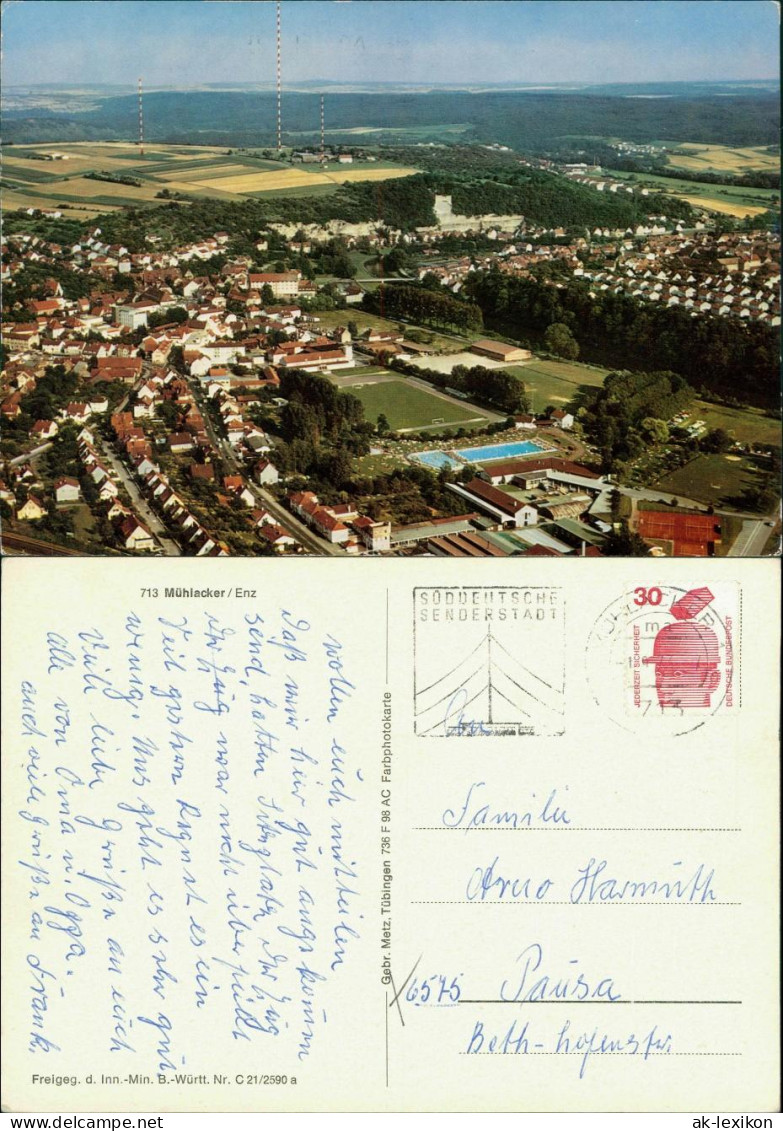 713 Mühlacker/Enz
wollen euch mitteilen
Daß wir hier gut angekommen
send, hatten Sitzplatz der Zug
der Zug war nicht überfüllt
Seit gestern Regnet es ein
wenig. Uns geht es sehr gut.
Viele liebe Grüße an euch
alle von Oma u. Oppa.
auch viele Grüße an Frank.
Freigeg. d. Inn.-Min. B.-Württ. Nr. C 21/2590 a
Gebr. Metz, Tübingen 736 F 98 AC Farbphotokarte
SÜDDEUTSCHE
SENDERSTADT
30
JEDERZEIT SICHERHEIT
DEUTSCHE BUNDESPOST
713
Familie
Arno Harmuth
6575 Pausa
Beth-hofenstr.
ak-lexikon